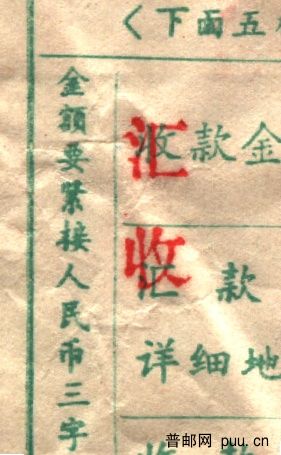 〈下面五
金額要緊接人民币三字
收款金
汇
汇 款
收
详细地
普邮网 puu.cn